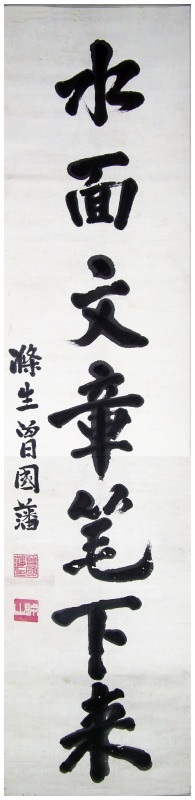 水面文章笔下来
滌生曾國藩